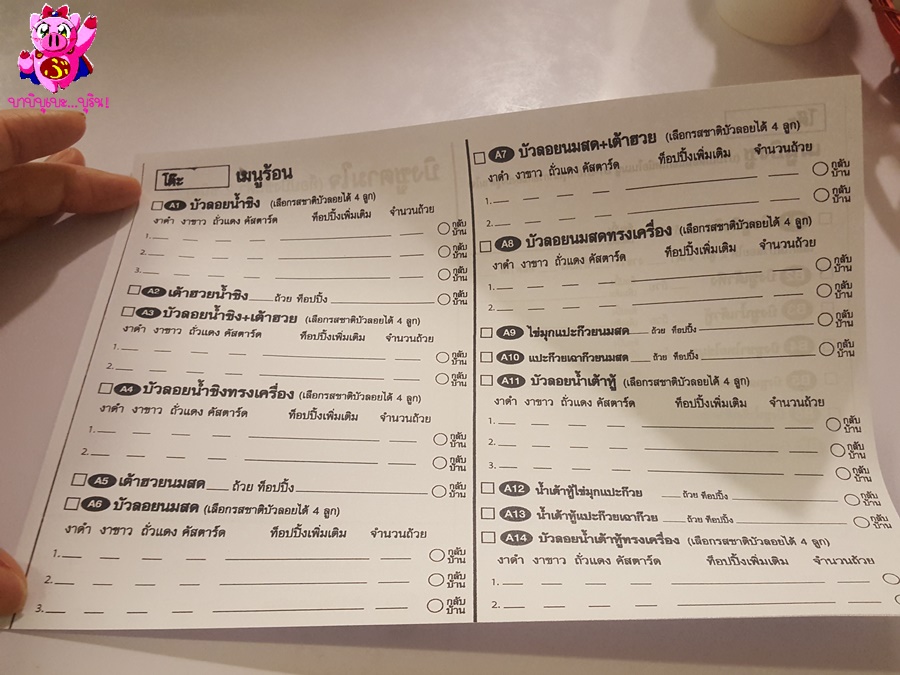 บาบิบูเบะ...บุริน!
โต๊ะ เมนูร้อน
A1 บัวลอยน้ำขิง (เลือกรสชาติบัวลอยได้ 4 ลูก)
งาดำ งาขาว ถั่วแดง คัสตาร์ด ท็อปปิ้งเพิ่มเติม จำนวนถ้วย
1. กลับบ้าน
2. กลับบ้าน
3. กลับบ้าน
A2 เต้าฮวยน้ำขิง ถ้วย ท็อปปิ้ง กลับบ้าน
A3 บัวลอยน้ำขิง+เต้าฮวย (เลือกรสชาติบัวลอยได้ 4 ลูก)
งาดำ งาขาว ถั่วแดง คัสตาร์ด ท็อปปิ้งเพิ่มเติม จำนวนถ้วย
1. กลับบ้าน
2. กลับบ้าน
A4 บัวลอยน้ำขิงทรงเครื่อง (เลือกรสชาติบัวลอยได้ 4 ลูก)
งาดำ งาขาว ถั่วแดง คัสตาร์ด ท็อปปิ้งเพิ่มเติม จำนวนถ้วย
1. กลับบ้าน
2. กลับบ้าน
A5 เต้าฮวยนมสด ถ้วย ท็อปปิ้ง กลับบ้าน
A6 บัวลอยนมสด (เลือกรสชาติบัวลอยได้ 4 ลูก)
งาดำ งาขาว ถั่วแดง คัสตาร์ด ท็อปปิ้งเพิ่มเติม จำนวนถ้วย
1. กลับบ้าน
2. กลับบ้าน
3. กลับบ้าน
A7 บัวลอยนมสด+เต้าฮวย (เลือกรสชาติบัวลอยได้ 4 ลูก)
งาดำ งาขาว ถั่วแดง คัสตาร์ด ท็อปปิ้งเพิ่มเติม จำนวนถ้วย
1. กลับบ้าน
2. กลับบ้าน
A8 บัวลอยนมสดทรงเครื่อง (เลือกรสชาติบัวลอยได้ 4 ลูก)
งาดำ งาขาว ถั่วแดง คัสตาร์ด ท็อปปิ้งเพิ่มเติม จำนวนถ้วย
1. กลับบ้าน
2. กลับบ้าน
A9 ไข่มุกแปะก๊วยนมสด ถ้วย ท็อปปิ้ง กลับบ้าน
A10 แปะก๊วยเฉาก๊วยนมสด ถ้วย ท็อปปิ้ง กลับบ้าน
A11 บัวลอยน้ำเต้าหู้ (เลือกรสชาติบัวลอยได้ 4 ลูก)
งาดำ งาขาว ถั่วแดง คัสตาร์ด ท็อปปิ้งเพิ่มเติม จำนวนถ้วย
1. กลับบ้าน
2. กลับบ้าน
3. กลับบ้าน
A12 น้ำเต้าหู้ไข่มุกแปะก๊วย ถ้วย ท็อปปิ้ง กลับบ้าน
A13 น้ำเต้าหู้แปะก๊วยเฉาก๊วย ถ้วย ท็อปปิ้ง กลับบ้าน
A14 บัวลอยน้ำเต้าหู้ทรงเครื่อง (เลือกรสชาติบัวลอยได้ 4 ลูก)
งาดำ งาขาว ถั่วแดง คัสตาร์ด ท็อปปิ้งเพิ่มเติม จำนวนถ้วย
1.
2.